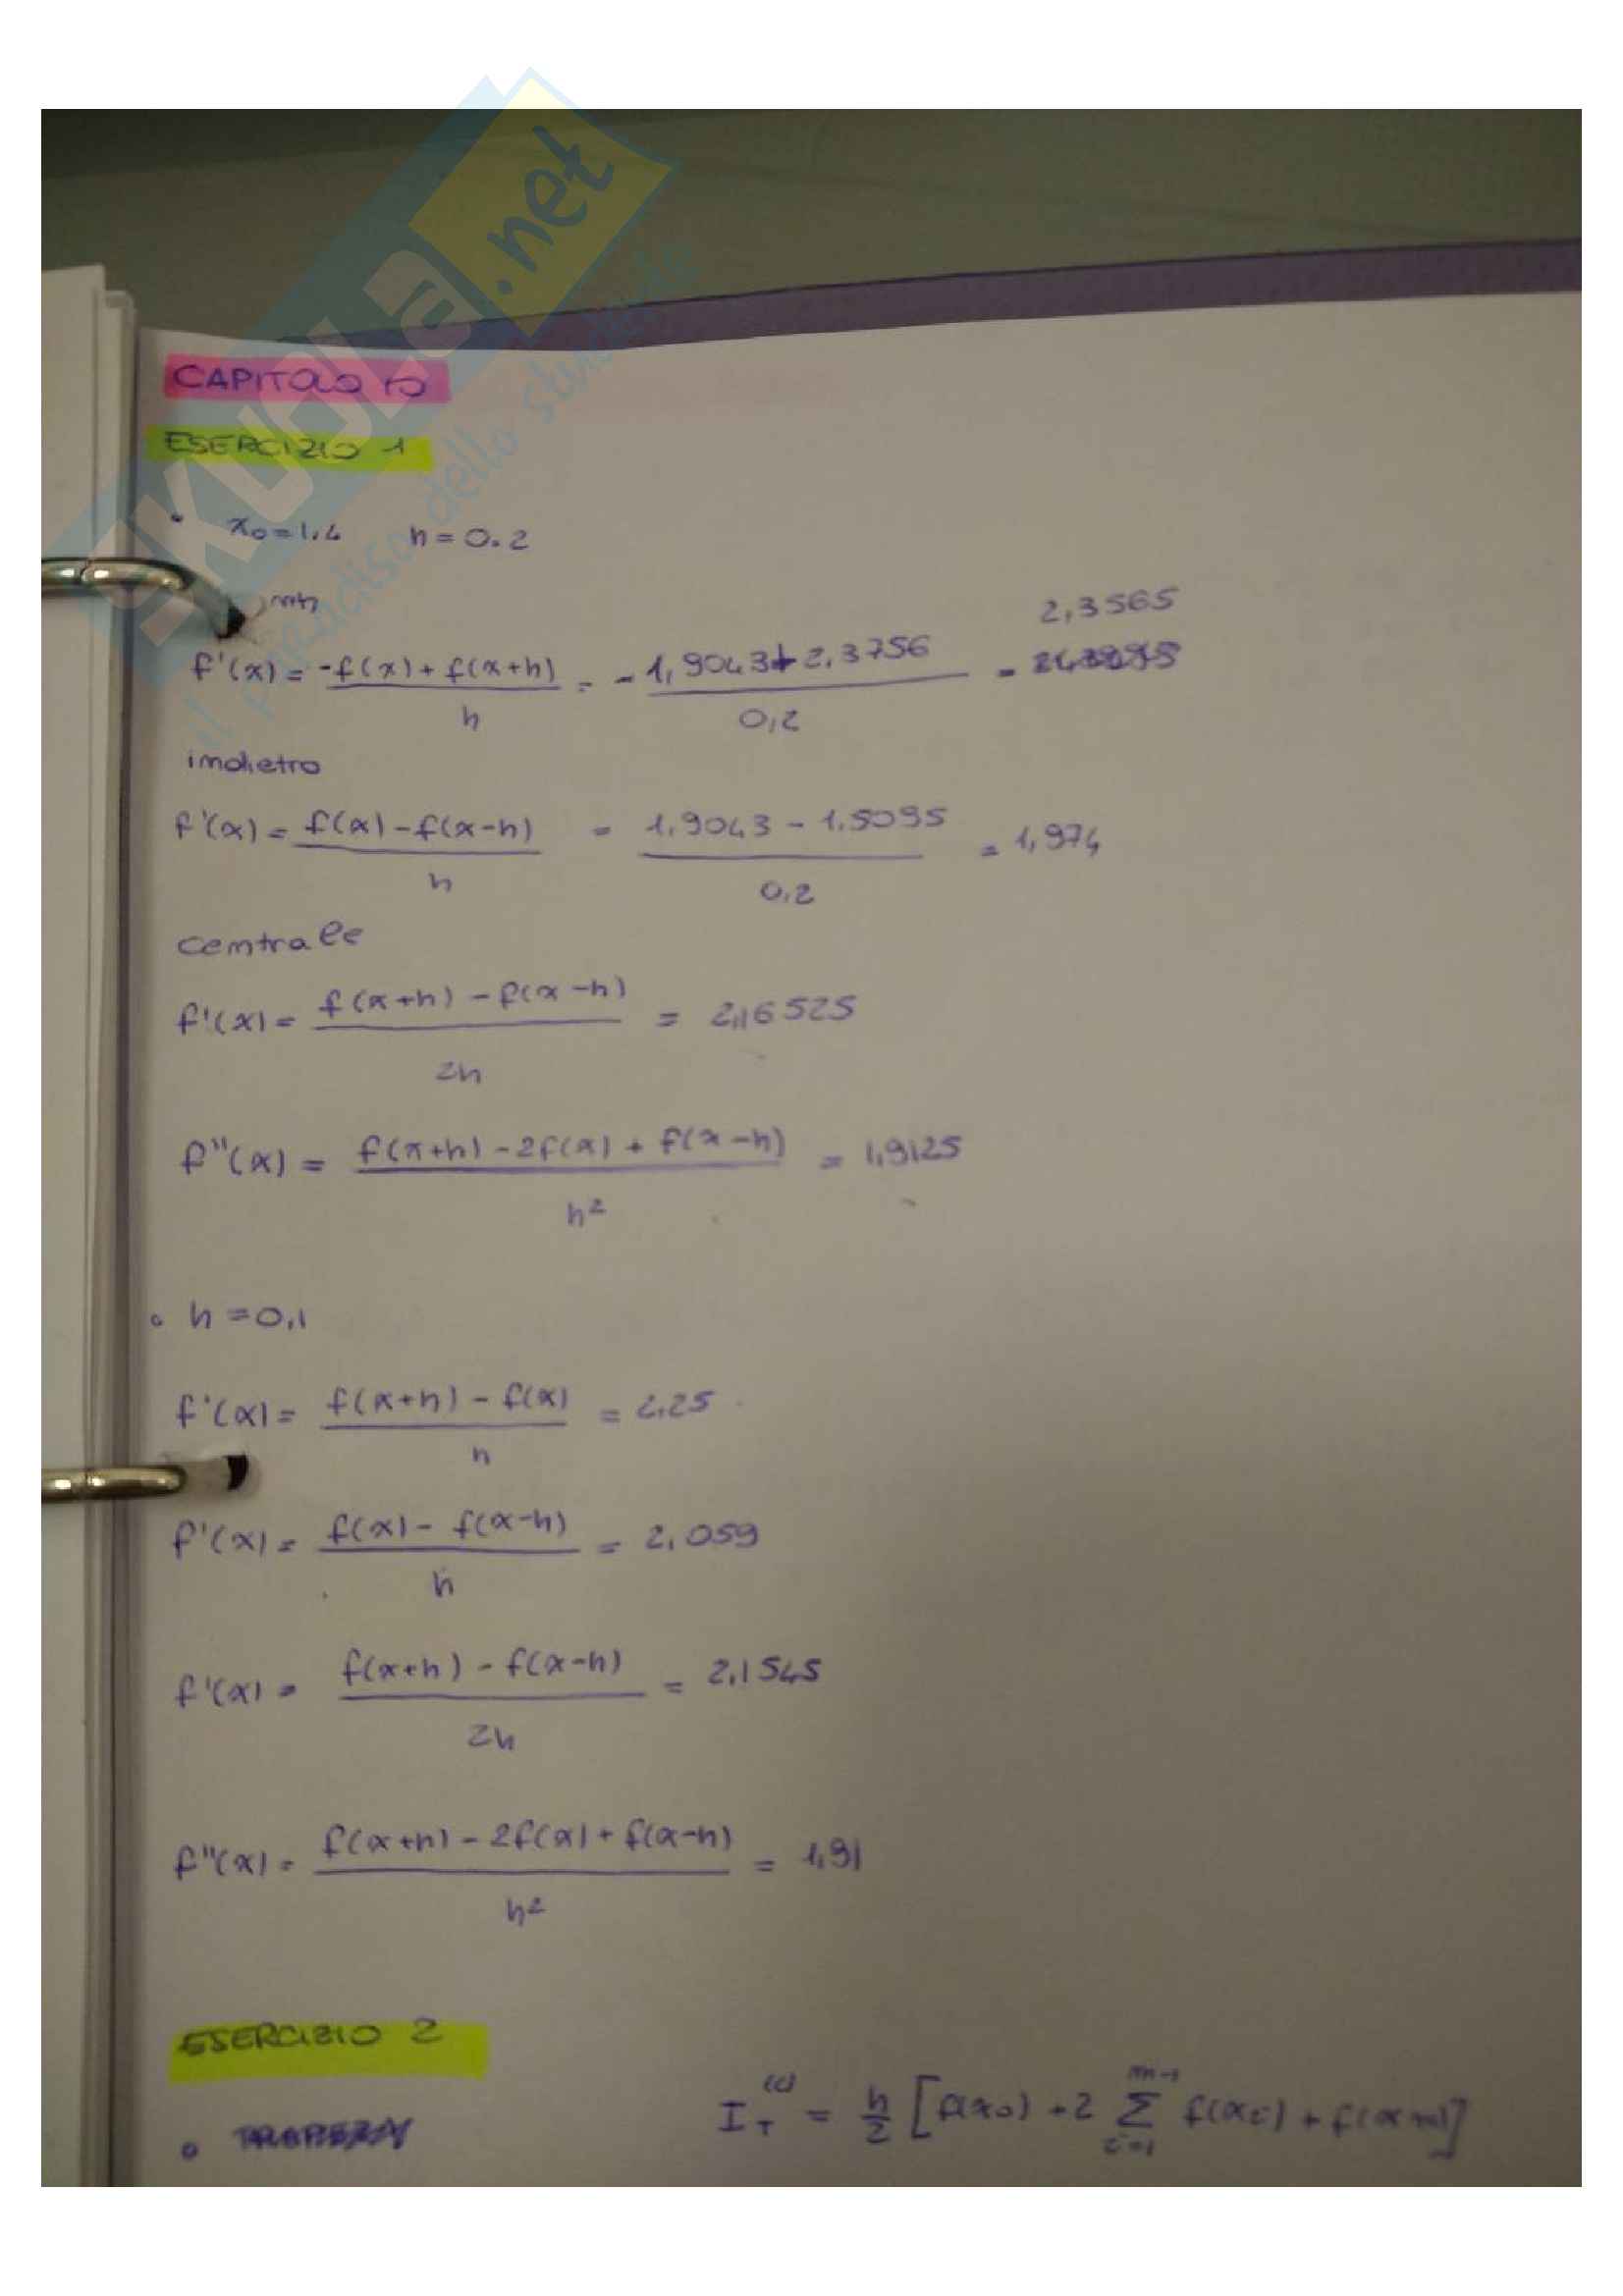 SKUOLa.net
il paradiso dello studente
CAPITOLO 10
ESERCIZIO 1
• x₀=1.4 h=0.2
f'(x) = -f(x)+f(x+h) / h = -1,9043+2,3756 / 0,2 = 2,3565
indietro
f'(x) = f(x)-f(x-h) / h = 1,9043-1.5095 / 0.2 = 1,974
centrale
f'(x) = f(x+h)-f(x-h) / 2h = 2,16525
f''(x) = f(x+h)-2f(x)+f(x-h) / h² = 1,9125
• h=0,1
f'(x) = f(x+h)-f(x) / h = 2.25
f'(x) = f(x)-f(x-h) / h = 2,059
f'(x) = f(x+h)-f(x-h) / 2h = 2,1545
f''(x) = f(x+h)-2f(x)+f(x-h) / h² = 1,91
ESERCIZIO 2
• I_T^(c) = h/2 [f(x₀)+2 Σ_{i=1}^{m-1} f(xi)+f(xm)]